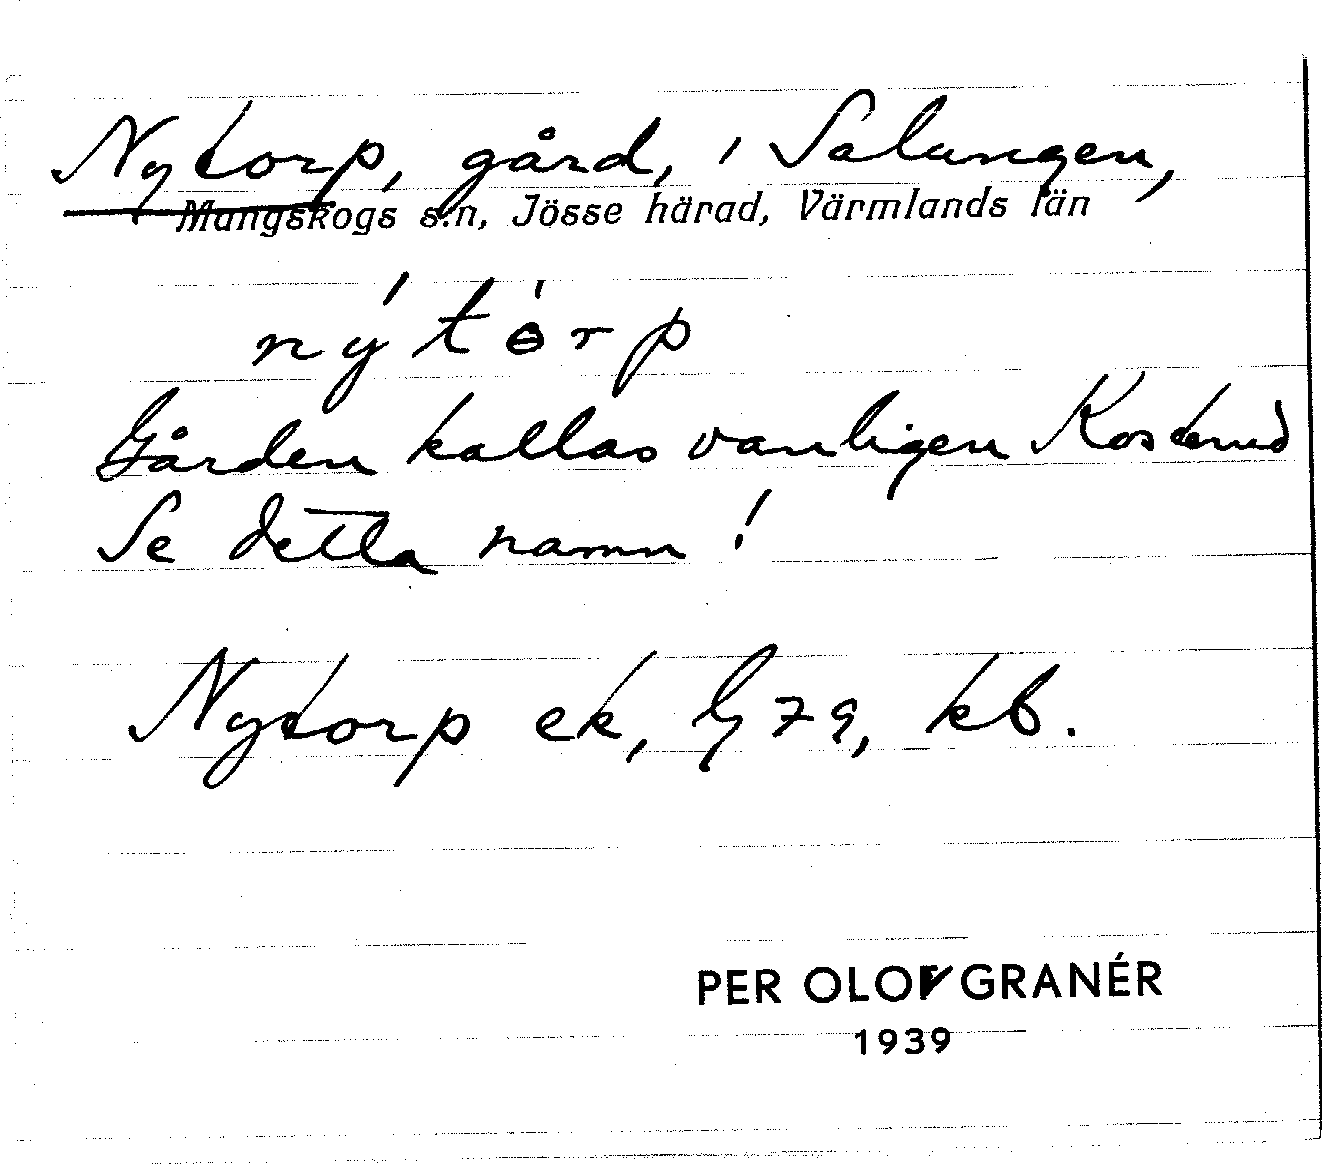 Nytorp, gård, i Salungen,
Mangskogs s:n, Jösse härad, Värmlands län
nýtòrp
Gården kallas vanligen Kosterud
Se detta namn!
Nytorp ek, G 79, kb.
PER OLOV GRANÉR
1939